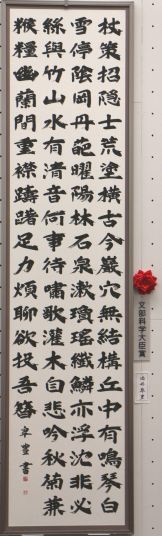 杖策招隱士荒塗橫古今巖穴無結構丘中有鳴琴白
雪停陰岡丹葩曜陽林石泉漱瓊瑤纖鱗亦浮沈非必
絲與竹山水有清音何事待嘯歌灌木自悲吟秋菊兼
糇糧幽蘭間重襟躊躇足力煩聊欲投吾簪 書
文部科学大臣賞